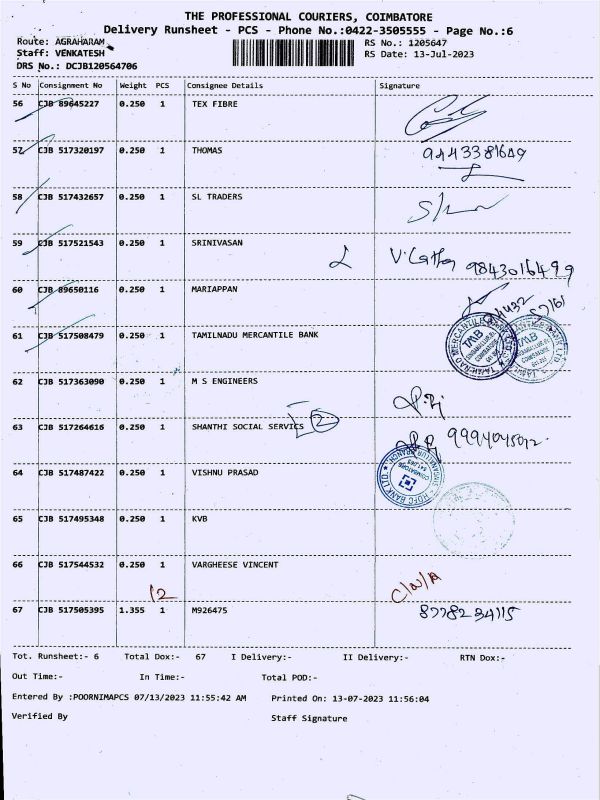 THE PROFESSIONAL COURIERS, COIMBATORE
Delivery Runsheet - PCS - Phone No.:0422-3505555 - Page No.:6
Route: AGRAHARAM RS No.: 1205647
Staff: VENKATESH RS Date: 13-Jul-2023
DRS No.: DCJB120564706
S No Consignment No Weight PCS Consignee Details Signature
56 CJB 89645227 0.250 1 TEX FIBRE
57 CJB 517320197 0.250 1 THOMAS 9443381649
58 CJB 517432657 0.250 1 SL TRADERS
59 CJB 517521543 0.250 1 SRINIVASAN 9843016499
60 CJB 89650116 0.250 1 MARIAPPAN
61 CJB 517508479 0.250 1 TAMILNADU MERCANTILE BANK
TMB
62 CJB 517363090 0.250 1 M S ENGINEERS
63 CJB 517264616 0.250 1 SHANTHI SOCIAL SERVICS 2
64 CJB 517487422 0.250 1 VISHNU PRASAD
HDFC BANK LTD
65 CJB 517495348 0.250 1 KVB
66 CJB 517544532 0.250 1 VARGHEESE VINCENT C/N/A
12
67 CJB 517505395 1.355 1 M926475 8778234115
Tot. Runsheet:- 6 Total Dox:- 67 I Delivery:- II Delivery:- RTN Dox:-
Out Time:- In Time:- Total POD:-
Entered By :POORNIMAPCS 07/13/2023 11:55:42 AM Printed On: 13-07-2023 11:56:04
Verified By Staff Signature